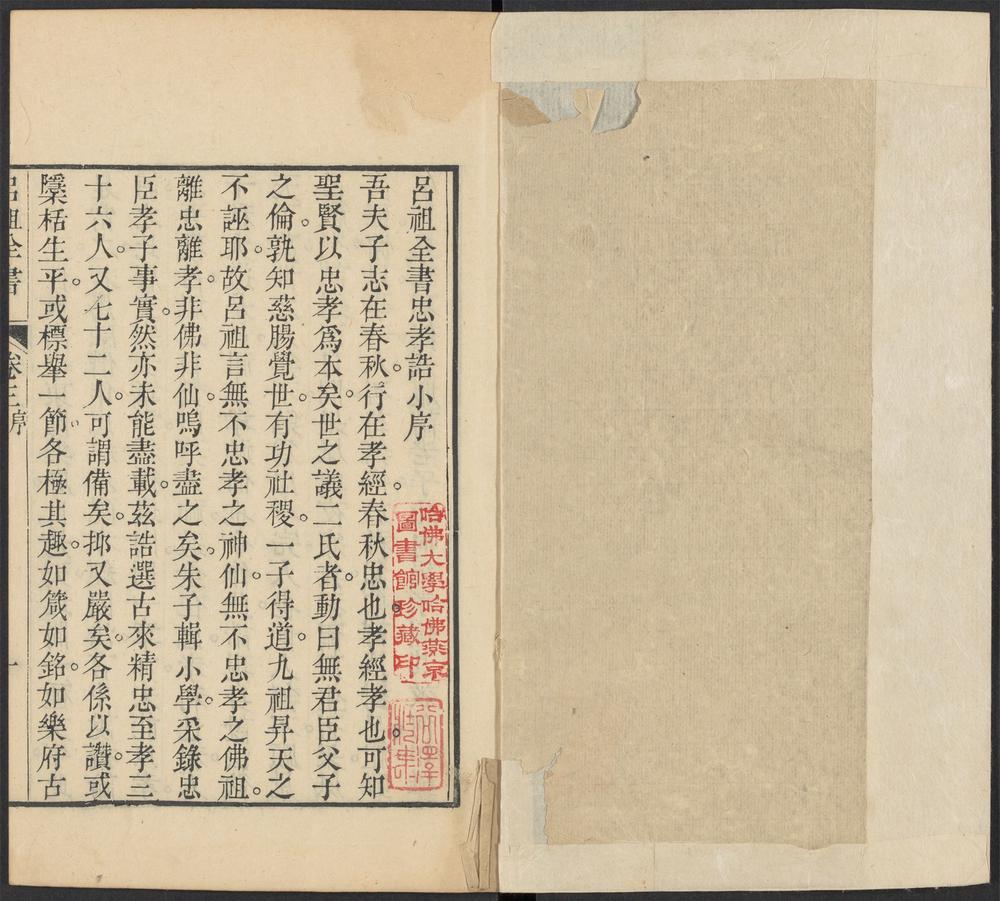 呂祖全書忠孝誥小序
吾夫子志在春秋。行在孝經。春秋忠也。孝經孝也。可知
聖賢以忠孝爲本矣。世之議二氏者。動曰無君臣父子
之倫。孰知慈腸覺世。有功社稷。一子得道。九祖昇天之
不誣耶。故呂祖言無不忠孝之神仙。無不忠孝之佛祖。
離忠離孝。非佛非仙。嗚呼盡之矣。朱子輯小學。采錄忠
臣孝子事實。然亦未能盡載。茲誥選古來精忠至孝三
十六人。又七十二人。可謂備矣。抑又嚴矣。各係以讚。或
櫽栝生平。或標舉一節。各極其趣。如箴如銘。如樂府古
呂祖全書
卷三序
一
哈佛大學哈佛燕京
圖書館珍藏印